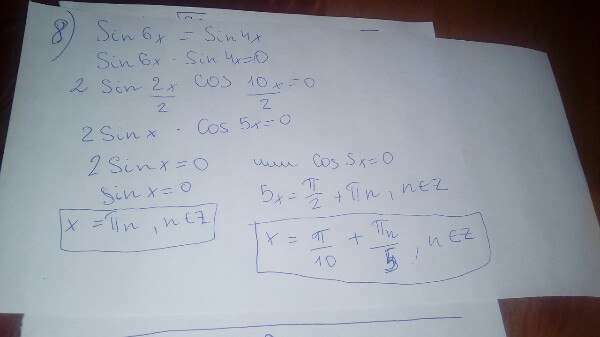 8) Sin 6x = Sin 4x
Sin 6x - Sin 4x = 0
2 Sin 2x/2 cos 10x/2 = 0
2 Sin x · Cos 5x = 0
2 Sin x = 0 или Cos 5x = 0
Sin x = 0 5x = π/2 + πn, n∈Z
x = πn, n∈Z
x = π/10 + πn/5, n∈Z